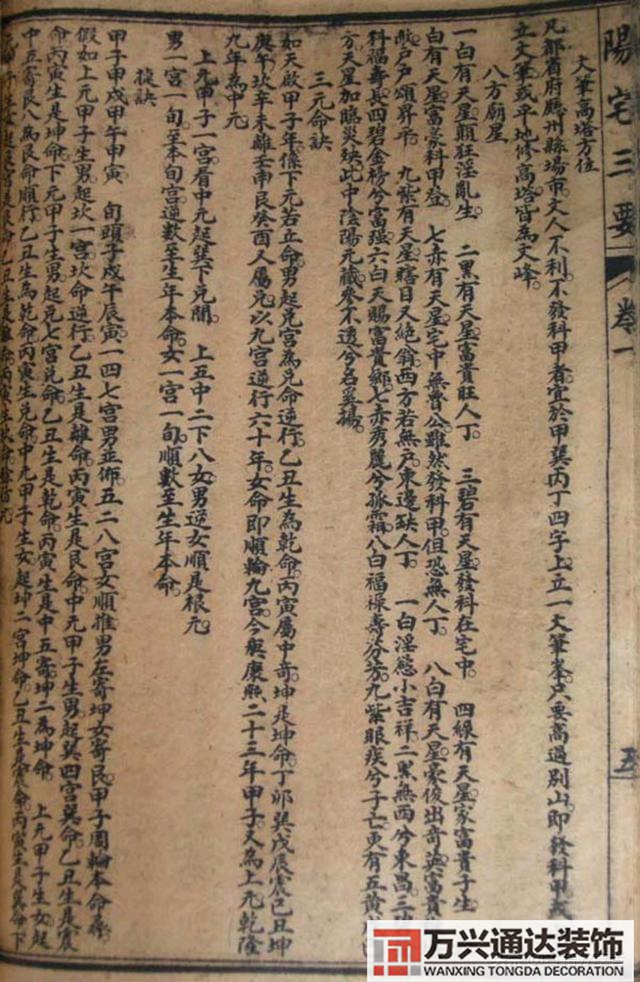 陽宅三要
卷一
五
文筆高塔方位
凡都省府廳州縣場市文人不利不發科甲者宜於甲巽丙丁四字上立一文筆峯只要高過別山即發科甲或
立文筆或平地修高塔皆為文峰
八方廟星
一白有天星顛狂淫亂生 二黑有天星富貴旺人丁 三碧有天星發科在宅中 四綠有天星家富貴子生
白有天星富豪科甲登 七赤有天星宅中無貴公雖然發科甲但恐無人丁 八白有天星豪俊出奇
戶戶頌昇平 九紫有天星瞎目又絕翁西方若無戶東邊缺人丁 一白淫慾小吉祥二黑無西兮東昌三
科福壽長四碧金榜兮富强六白天賜富貴鄉七赤秀麗兮孤霜八白福祿壽分芳九紫眼疾兮子亡更有五黃
方天星加臨災殃此中陰陽元藏參不透兮名莫揚
三元命訣
如天啟甲子年係下元若立命男起兌宮為兌命逆行乙丑生為乾命丙寅屬中寄坤是坤命丁卯巽戊辰震己丑坤
庚午坎辛未離壬申艮癸酉又屬兌以九宮逆行六十年女命即順輪九宮今與康熙二十三年甲子又為上元乾隆
九年為中元
上元甲子一宮看中元起巽下兌間 上五中二下八女男逆女順是根元
男一宮一旬至本旬宮逆數至生年本命女一宮一旬順數至生年本命
捷訣
甲子甲戌甲午甲寅 旬頭子戌午辰寅一四七宮男並佈五二八宮女順推男左寄坤女寄艮甲子圓輪本命尋
假如上元甲子生男起坎一宮坎命逆行乙丑生是離命丙寅生是艮命中元甲子生男起巽四宮巽命乙丑生是震
命丙寅生是坤命下元甲子生男起兌七宮兌命乙丑生是乾命丙寅生是中五寄坤二為坤命 上元甲子生女起
中五寄艮八為艮命順行乙丑生為乾命丙寅生兌命中元甲子生女起坤二宮坤命乙丑生是震命丙寅生是巽命下
万兴通达装饰
WANXING TONGDA DECORATION